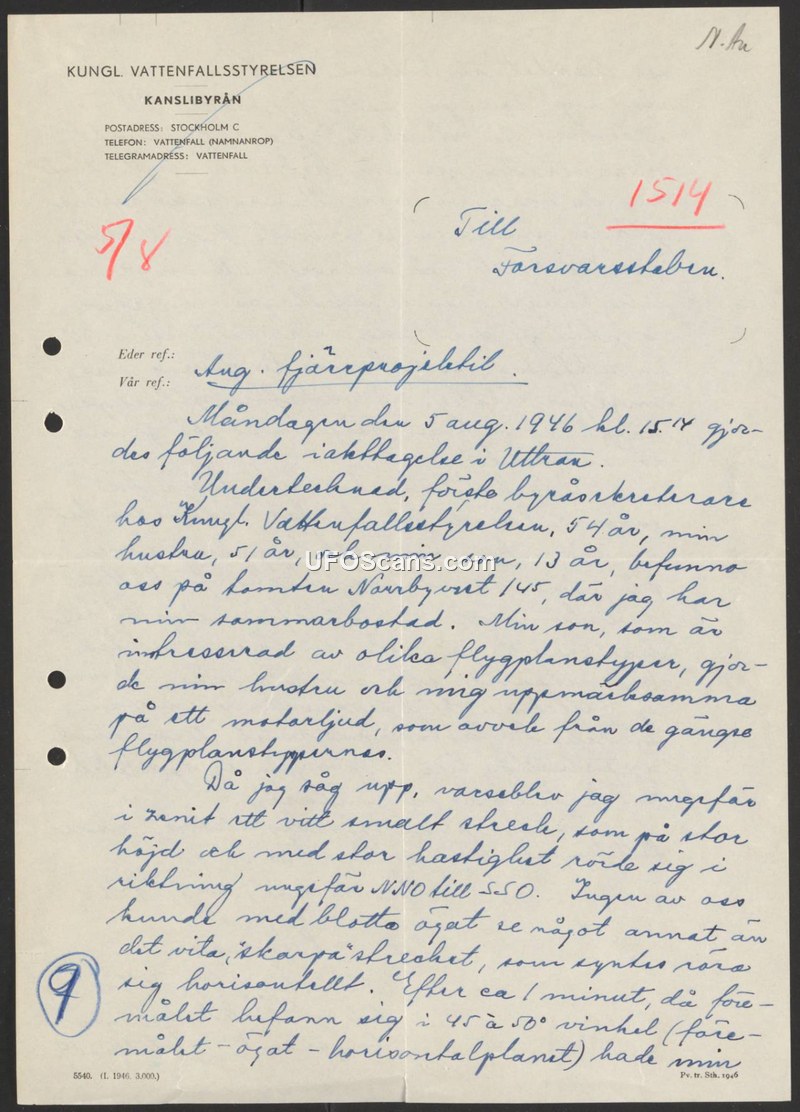 N. An
KUNGL. VATTENFALLSSTYRELSEN
KANSLIBYRÅN
POSTADRESS: STOCKHOLM C
TELEFON: VATTENFALL (NAMNANROP)
TELEGRAMADRESS: VATTENFALL
1514
5/8
Till
Försvarsstaben.
Eder ref.:
Vår ref.:
Ang. fjärrprojektil.
Måndagen den 5 aug. 1946 kl. 15.14 gjor-
des följande iakttagelse i Uttran.
Undertecknad, förste byråsekreterare
hos Kungl. Vattenfallsstyrelsen, 54 år, min
hustru, 51 år, och min son, 13 år, befunno
UFOScans.com
oss på tomten Norrbyvret 145, där jag har
min sommarbostad. Min son, som är
intresserad av olika flygplanstyper, gjor-
de min hustru och mig uppmärksamma
på ett motorljud, som avvek från de gängse
flygplanstypernas.
Då jag såg upp, varseblev jag ungefär
i zenit ett vitt smalt streck, som på stor
höjd och med stor hastighet rörde sig i
riktning ungefär NNO till SSO. Ingen av oss
kunde med blotta ögat se något annat än
det vita, "skarpa" strecket, som syntes röra
sig horisontellt. Efter ca 1 minut, då före-
målet befann sig i 45 à 50° vinkel (före-
målet - ögat - horisontalplanet) hade min
9
5540. (I. 1946. 3.000.)
Pv. tr. Sth. 1946